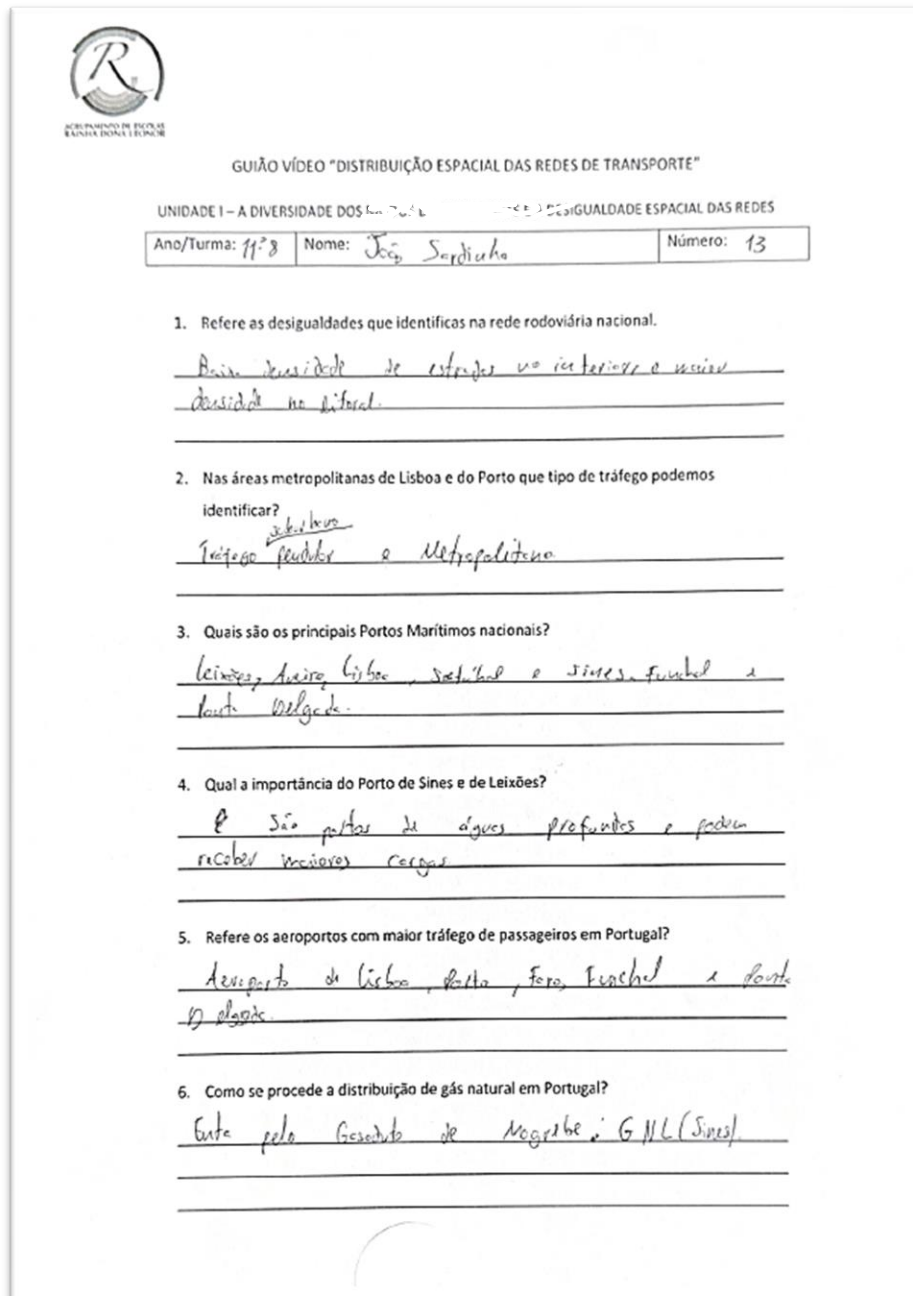 AGRUPAMENTO DE ESCOLAS
RAINHA DONA LEONOR
GUIÃO VÍDEO "DISTRIBUIÇÃO ESPACIAL DAS REDES DE TRANSPORTE"
UNIDADE I – A DIVERSIDADE DOS DESIGUALDADE ESPACIAL DAS REDES
Ano/Turma: 11º8 Nome: João Sardinha Número: 13
1. Refere as desigualdades que identificas na rede rodoviária nacional.
Baixa densidade de estradas no interior e maior
densidade no litoral.
2. Nas áreas metropolitanas de Lisboa e do Porto que tipo de tráfego podemos
identificar?
Tráfego pendular e Metropolitano
3. Quais são os principais Portos Marítimos nacionais?
Leixões, Aveiro, Lisboa, Setúbal e Sines. Funchal e
Ponta Delgada.
4. Qual a importância do Porto de Sines e de Leixões?
São portos de águas profundas e podem
receber maiores cargas
5. Refere os aeroportos com maior tráfego de passageiros em Portugal?
Aeroporto de Lisboa, Porto, Faro, Funchal e Ponta
Delgada.
6. Como se procede a distribuição de gás natural em Portugal?
pelo Gasoduto de GNL (Sines)